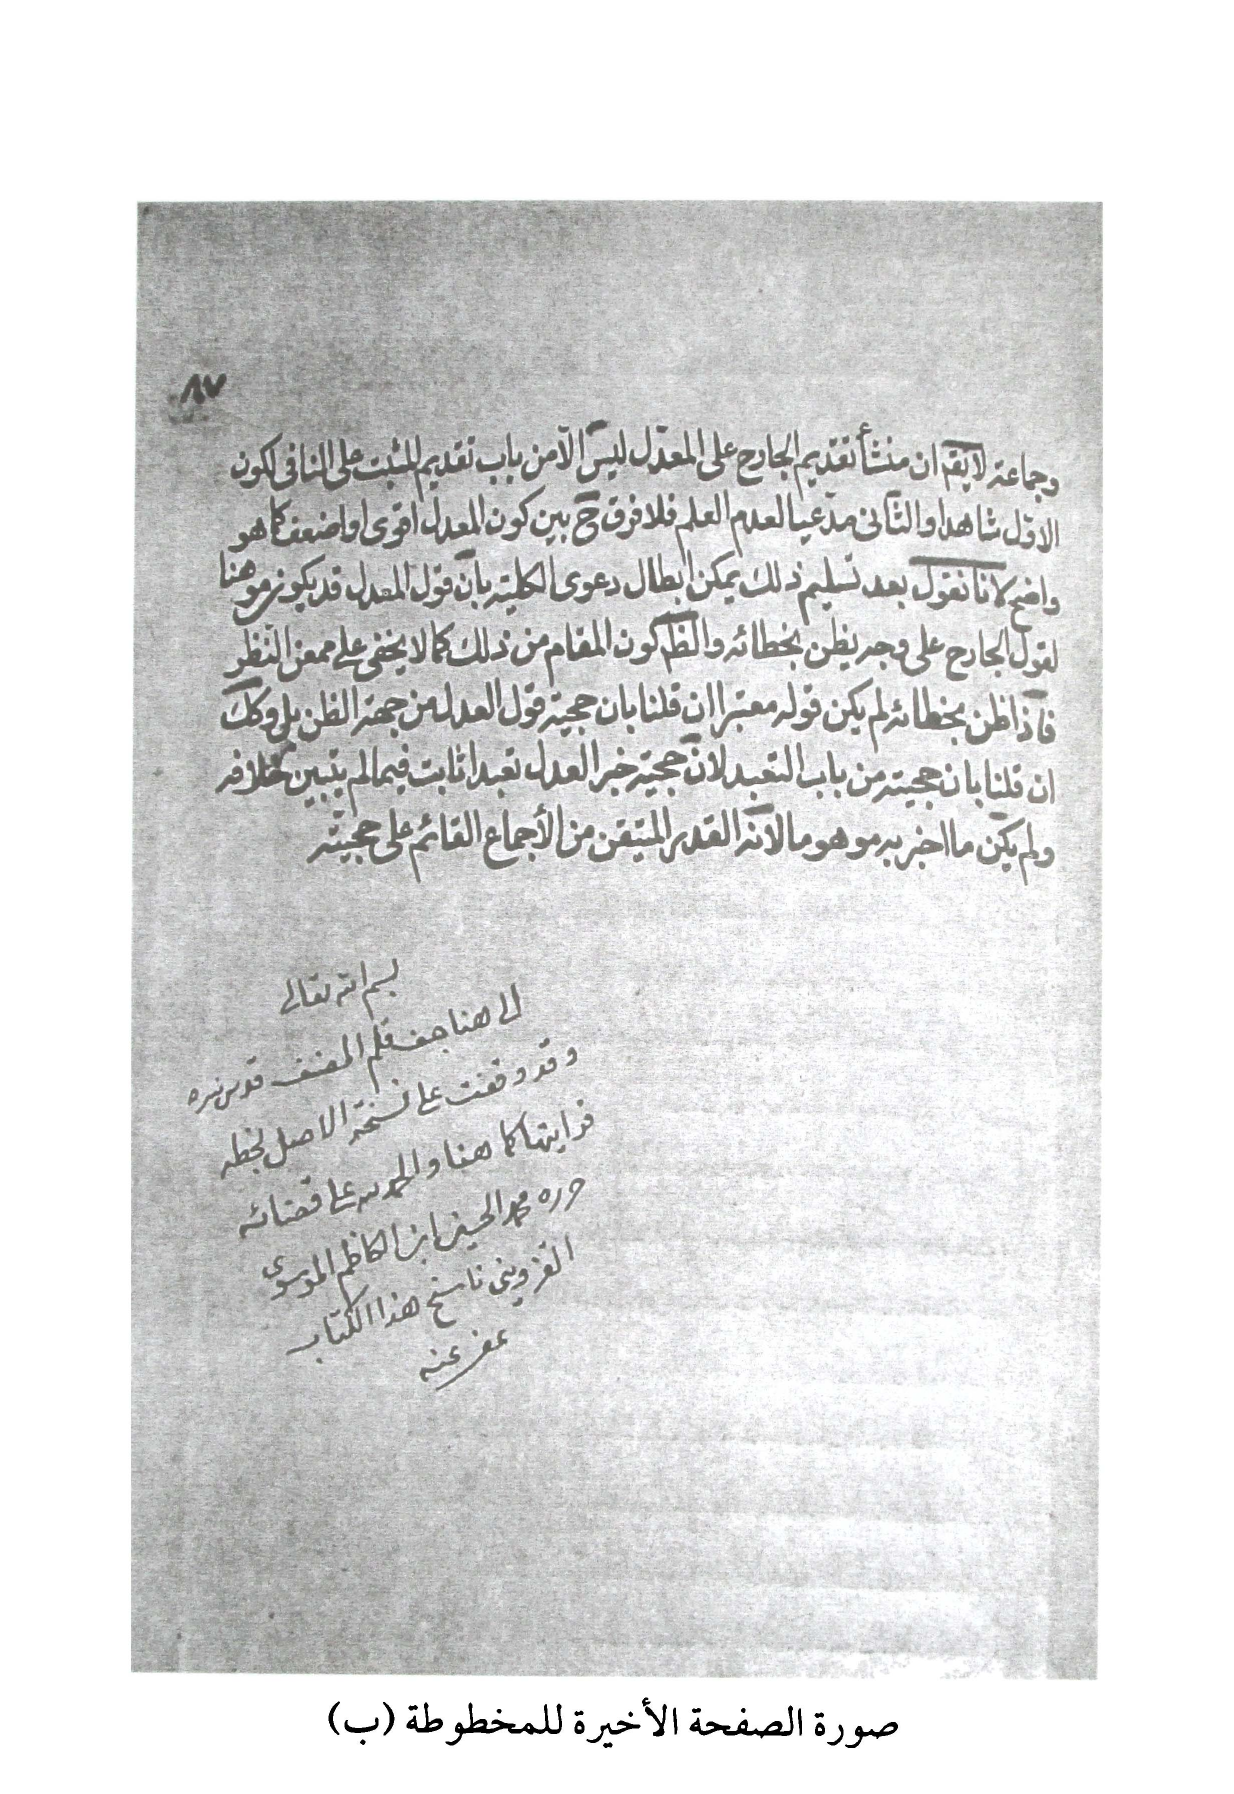 ٨٧
وجماعة لا يقم ان منشأ تقديم الجارح على المعدّل ليس الّا من باب تقديم المثبت على النافى لكون
الاوّل شاهدا والثانى مدّعيا لعدم العلم فلا فرق ح بين كون المعدل اقوى او اضعف كما هو
واضح لانا نقول بعد تسليم ذلك يمكن ابطال دعوى الكلية بانّ قول المعدل قد يكون موهنا
لقول الجارح على وجه يظن بخطائه والظ كون المقام من ذلك كما لا يخفى على ممعن النظر
فاذا ظن بخطائه لم يكن قوله معتبرا ان قلنا بان حجية قول العدل من جهة الظن بل وكك
ان قلنا بان حجيته من باب التعبد لانّ حجية خبر العدل تعبدا ثابت فيما لم يتبين خلافه
ولم يكن ما اخبر به موهوما لانّه القدر المتيقن من الأجماع القائم على حجيته
بسم الله تعالى
الى هنا جف قلم المصنف قدس سره
وقد وقفت على نسخة الاصل بخطه
فرايتها كما هنا والحمد لله على قضائه
حرره محمد الحسين ابن الكاظم الموسوى
القزوينى ناسخ هذا الكتاب
عفى عنه
صورة الصفحة الأخيرة للمخطوطة (ب)